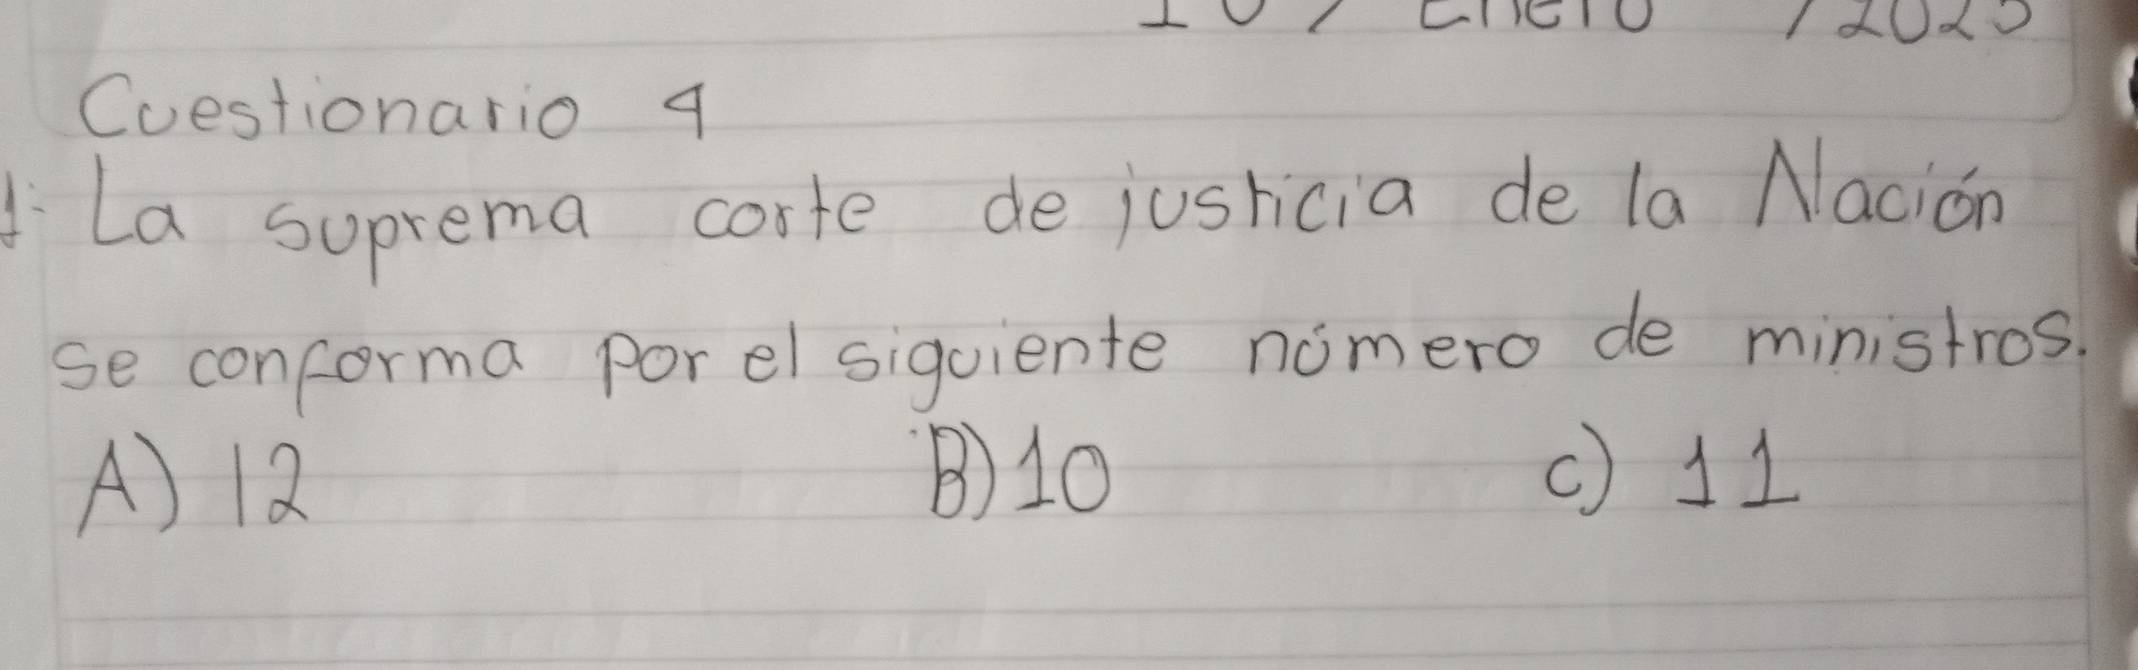 10 / Enero / 2025
Cuestionario 4
1- La suprema corte de justicia de la Nación
se conforma por el siguiente número de ministros.
A) 12 B) 10 C) 11